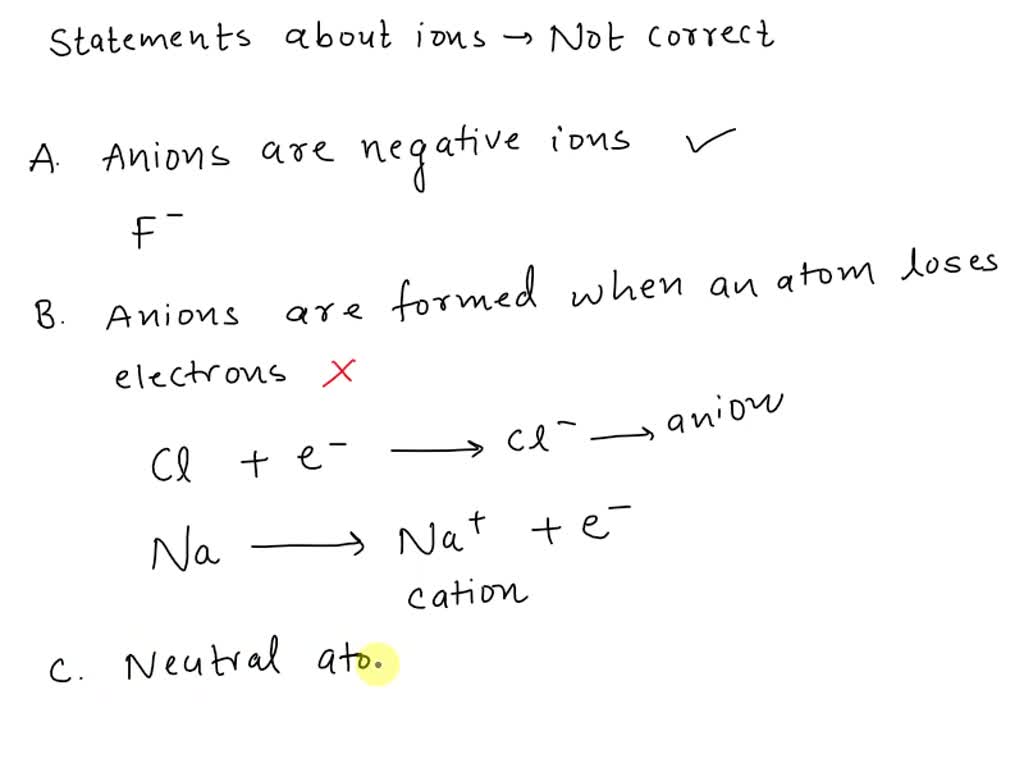 Statements about ions → Not correct
A. Anions are negative ions ✓
F⁻
B. Anions are formed when an atom loses
electrons ✗
Cl + e⁻ ⟶ Cl⁻ ⟶ anion
Na ⟶ Na⁺ + e⁻
cation
C. Neutral ato